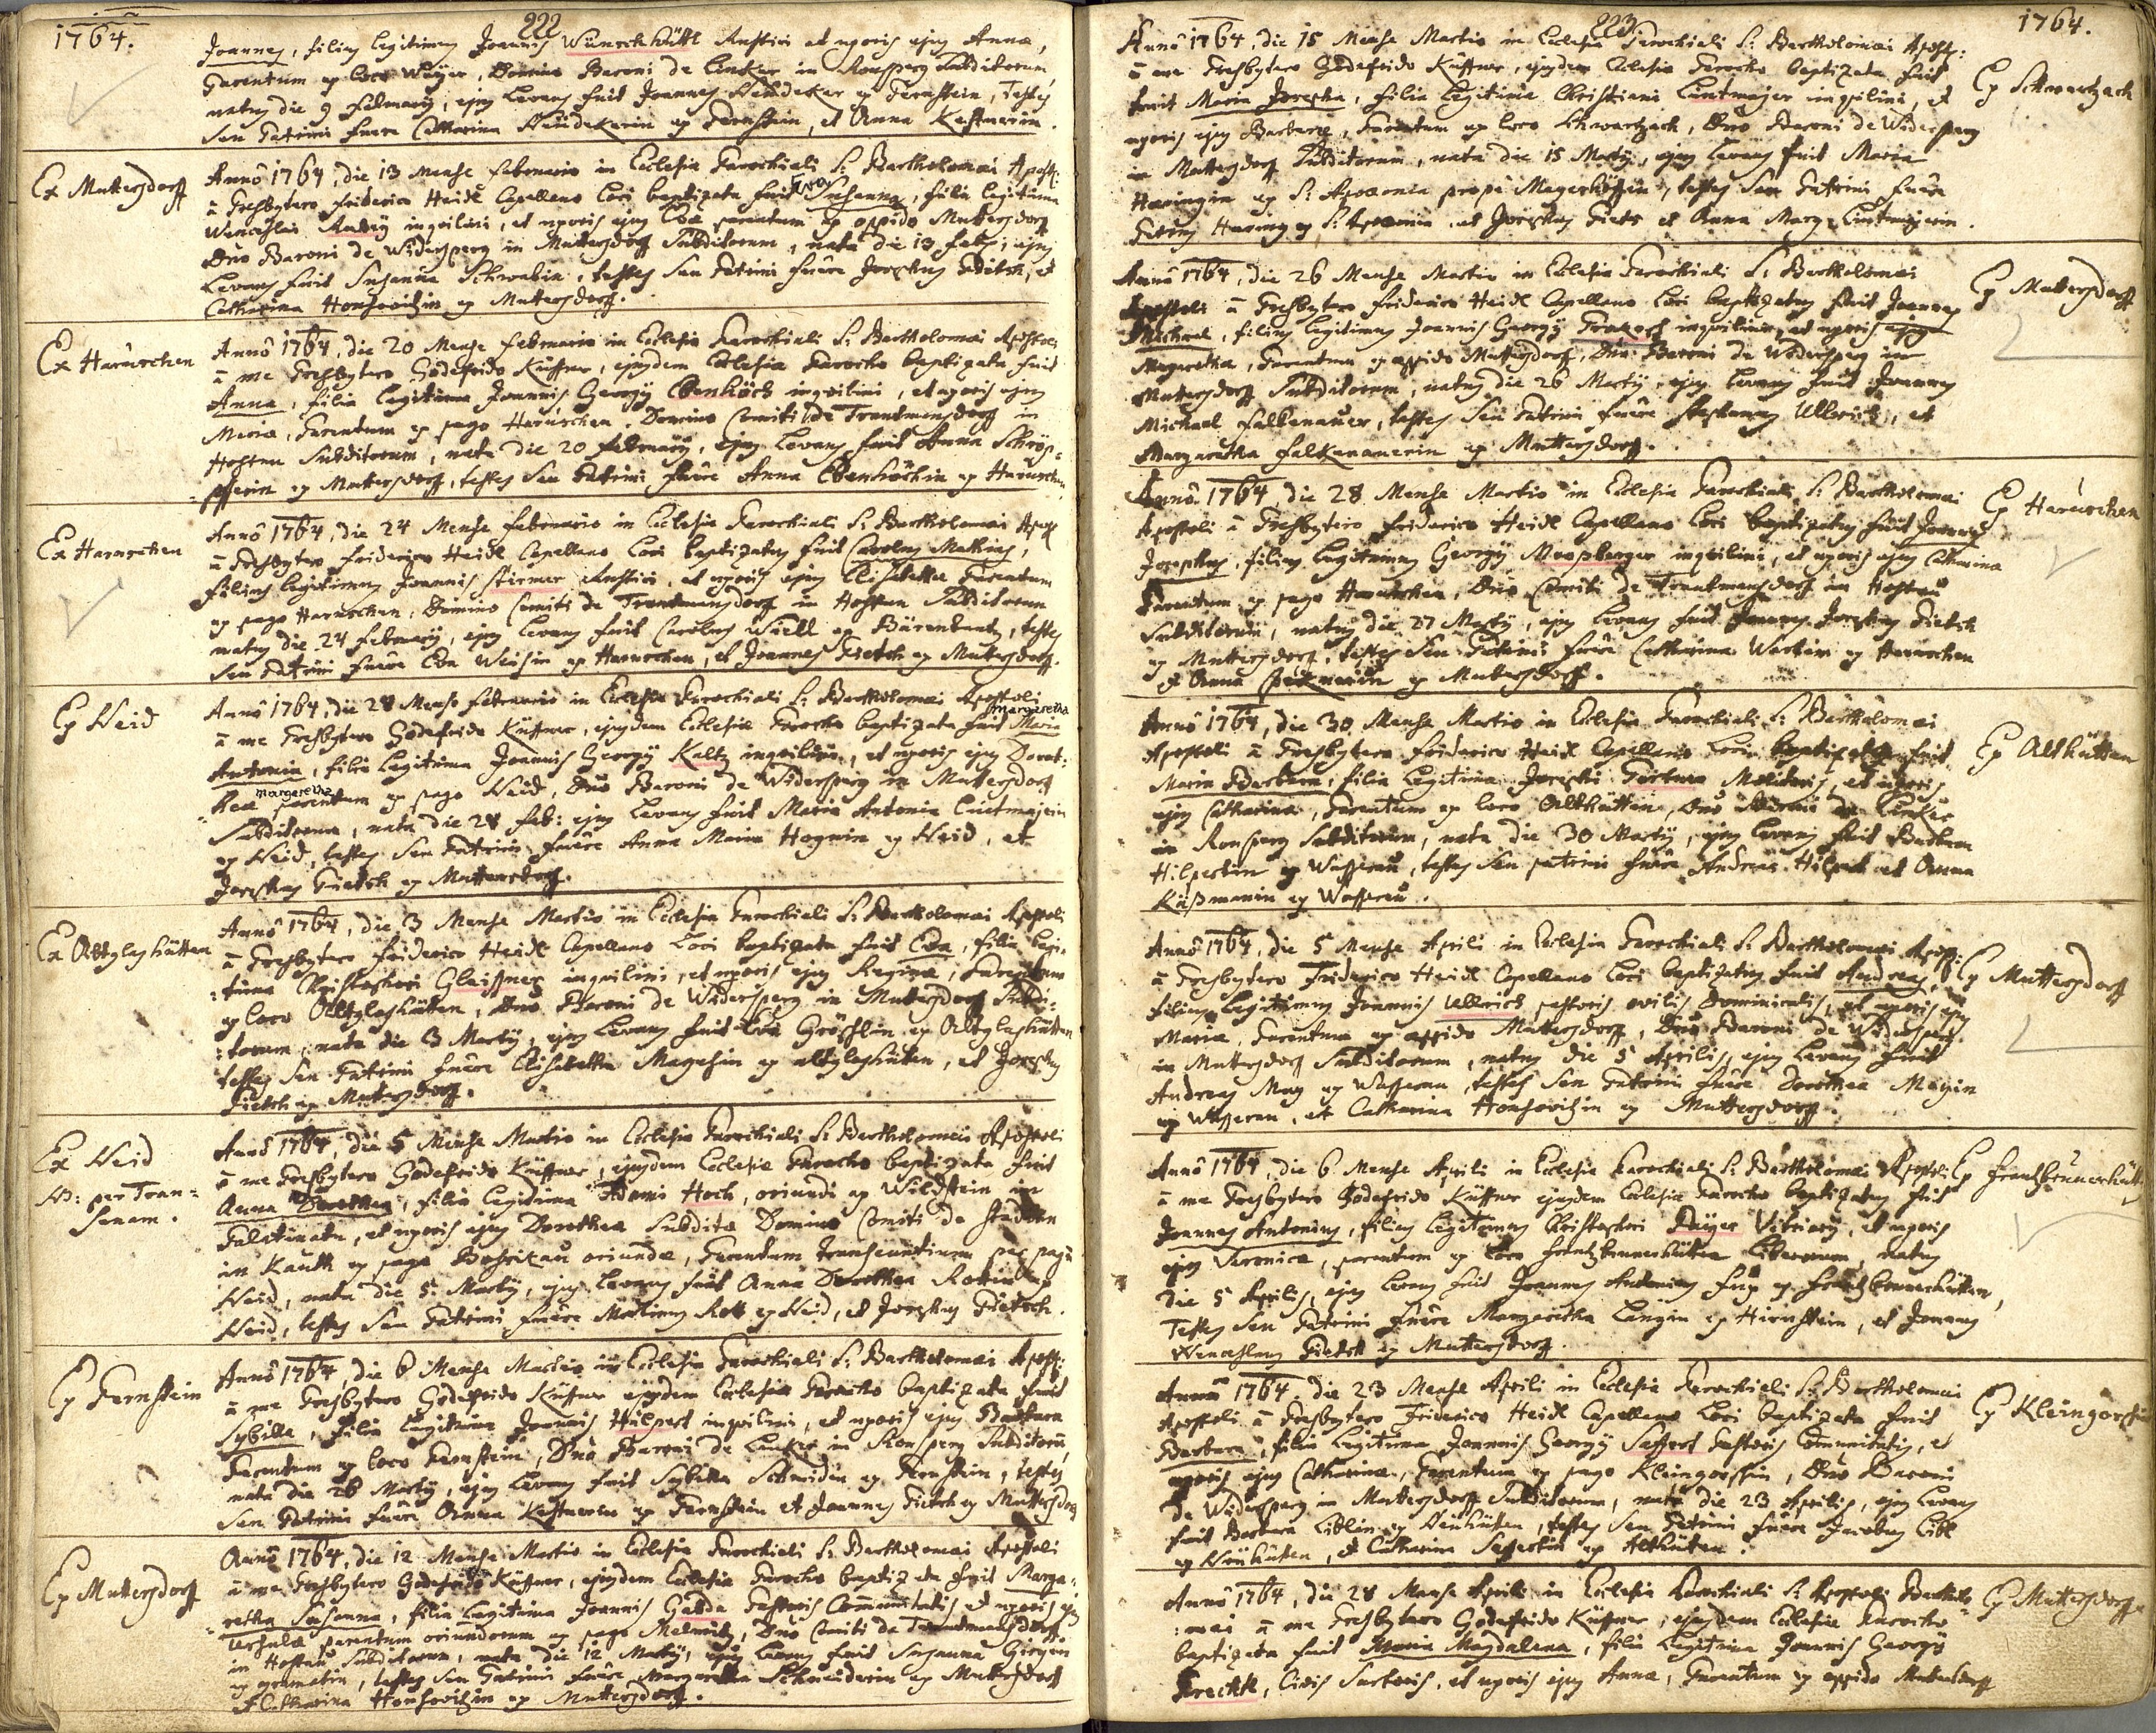 222
1764.
Joannes, filius legitimus Joannis Wünschhüttl Rustici et uxoris ejus Annæ,
Parentum ex loco Weÿer, Domino Baroni de Linker in Ronsperg Subditorum,
natus die 9 Februarÿ, ejus Levans fuit Joannes Neudeker ex Fernstein, Testes
seu Patrini fuere Catharina Neudekerin ex Fernstein, et Anna Kestnerin.
Ex Muttersdorff
Annô 1764, die 13 Mense Februario in Ecclesia Parochiali S: Bartholomæi Apost:
â Presbytero Friderico Heidl Capellano Loci baptizata fuit Susanna, filia legitima
Wenceslai inquilini, et uxoris ejus Evæ parentum ex oppido Muttersdorff
Dño Baroni de Widersperg in Muttersdorff Subditorum, nata die 13 Feb: ejus
Levans fuit Susanna Schwabin, testes seu Patrini fuere Josephus Dietch, et
Catharina Honsowitzin ex Muttersdorff.
Ex Haruschen
Annô 1764, die 20 Mense Februario in Ecclesia Parochiali S: Bartholomæi Apostoli
â me Presbytero Godefrido Küffner, ejusdem Ecclesiæ Parocho baptizata fuit
Anna, filia legitima Joannis Georgÿ Ebenhöch inquilini, et uxoris ejus
Mariæ, Parentum ex pago Haruschen, Domino Comiti de Trautmensdorff in
Hostau Subditorum, nata die 20 Februarÿ, ejus Levans fuit Anna Schrÿp=
=fferin ex Muttersdorff, testes seu Patrini fuere Anna Ebenhöchin ex Haruschen
Ex Haruschen
Annô 1764, die 24 Mense Februario in Ecclesia Parochiali S: Bartholomæi Apost
â Presbytero Friderico Heidl Capellano Loci baptizatus fuit Carolus Mathias,
filius legitimus Joannis Stirner Rustici, et uxoris ejus Elisabethæ Parentum
ex pago Haruschen, Domino Comiti de Trautmensdorff in Hostau Subditorum
natus die 24 Februarÿ, ejus Levans fuit Carolus Wiell ex Bärentantz, testes
seu Patrini fuere Eva Weisin ex Haruschen, et Joannes Dietch ex Muttersdorff.
Ex Heid
Annô 1764, die 28 Mense Februario in Ecclesia Parochiali S: Bartholomæi Apostoli
margaretha
â me Presbytero Godefrido Küffner, ejusdem Ecclesiæ Parocho baptizata fuit Maria
Antonia, filia legitima Joannis Georgÿ Kaltz inquilini, et uxoris ejus Dorot:
margaretha
heæ parentum ex pago Heid, Dño Baroni de Widersperg in Muttersdorff
Subditorum, nata die 28 Feb: ejus Levans fuit Maria Antonia Lintmajerin
ex Heid, testes seu Patrini fuere Anna Maria Hognin ex Heid, et
Josephus Dietch ex Muttersdorff.
Ex Altglashütten
Annô 1764, die 3 Mense Martio in Ecclesia Parochiali S: Bartholomæi Apostoli
â Presbytero Friderico Heidl Capellano Loci baptizata fuit Eva, filia legi=
=tima Christophori Gleissner inquilini, et uxoris ejus Reginæ, Parentum
ex loco Altglashütten, Dño Baroni de Widersperg in Muttersdorff Subdi=
=torum, nata die 3 Martÿ, ejus Levans fuit Eva Gröschlin ex Altglashütten
testes seu Patrini fuere Elisabetha Magetzin ex altglashütten, et Josephus
Dietch ex Muttersdorff.
Ex Heid
NB: per Tran=
senam.
Annô 1764, die 5 Mense Martio in Ecclesia Parochiali S: Bartholomæi Apostoli
â me Presbytero Godefrido Küffner, ejusdem Ecclesiæ Parocho baptizata fuit
Anna Dorothea, filia legitima Adami Hoch, oriundi ex Wildstein in
Palatinatu, et uxoris ejus Dorotheæ Subditæ Domino Comiti de Stadian
in Kauth ex pago oriundæ, Parentum transeuntium per pagũ
Heid, nata die 5 Martÿ, ejus Levans fuit Anna Dorothea Rottin ex
Heid, testes seu Patrini fuere Martinus Rott ex Heid, et Josephus Dietsch.
Ex Fernstein
Annô 1764, die 6 Mense Martio in Ecclesia Parochiali S: Bartholomæi Apost:
â me Presbytero Godefrido Küffner ejusdem Ecclesiæ Parocho baptizata fuit
Sybilla, filia legitima Joannis Hilpert inquilini, et uxoris ejus Barbara
Parentum ex loco Fernstein, Dño Baroni de Linker in Ronsperg Subditorũ,
nata die 26 Martÿ, ejus Levans fuit Sybilla Schmidin ex Fernstein, testes
seu Patrini fuere Anna Kestnerin ex Fernstein et Joannes Dietch ex Muttersdorff
Ex Muttersdorff
Annô 1764, die 12 Mense Martio in Ecclesia Parochiali S: Bartholomæi Apostoli
â me Presbytero Godefrido Küffner, ejusdem Ecclesiæ Parocho baptizata fuit Marga=
retha Susanna, filia legitima Joannis Gabda Pastoris Communitatis et uxoris ejus
Ursulæ parentum oriundorum ex pago Melmitz, Dño Comiti de Trautmansdorff
in Hostau Subditorum, nata die 12 Martÿ, ejus Levans fuit Susanna Girgin
ex, testes seu Patrini fuere Margaretha Schneiderin ex Muttersdorff
et Catharina Honsowitzin ex Muttersdorff.
223
1764.
Annô 1764, die 15 Mense Martio in Ecclesia Parochiali S: Bartholomæi Apost:
â me Presbytero Godefrido Küffner, ejusdem Ecclesiæ Parocho baptizata fuit
Maria Josepha, filia legitima Christiani Lintmajer inquilini, et
uxoris ejus Barbaræ, Parentum ex loco Schwartzach, Dño Baroni de Widersperg
in Muttersdorff Subditorum, nata die 15 Martÿ, ejus Levans fuit Maria
Haringin ex S: Apolonia propè, testes seu Patrini fuere
Haring ex S: Apolonia, et Josephus Dietz et Anna Marg: Lintmajerin.
Ex Schwartzach
Annô 1764, die 26 Mense Martio in Ecclesia Parochiali S: Bartholomæi
Apostoli â Presbytero Friderico Heidl Capellano Loci baptizatus fuit Joannes
Michael, filius legitimus Joannis Georgÿ inquilini, et uxoris ejus
Margaretha, Parentum ex oppido Muttersdorff, Dño Baroni de Widersperg in
Muttersdorff Subditorum, natus die 26 Martÿ, ejus Levans fuit Joannes
Michael Falkenauer, testes seu Patrini fuere Stephanus Ullrich, et
Margaretha Falkenauerin ex Muttersdorff.
Ex Muttersdorff
Annô 1764, die 28 Mense Martio in Ecclesia Parochiali S: Bartholomæi
Apostoli â Presbytero Friderico Heidl Capellano Loci baptizatus fuit Joannes
Josephus, filius legitimus Georgÿ Moosberger inquilini, et uxoris ejus Catharina
Parentum ex pago Haruschen, Dño Comiti de Trautmansdorff in Hostau
Subditorũ, natus die 27 Martÿ, ejus Levans fuit Joannes Josephus Dietch
ex Muttersdorff, testes seu Patrini fuere Catharina ex Haruschen
et Anna ex Muttersdorff.
Ex Haruschen
Annô 1764, die 30 Mense Martio in Ecclesia Parochiali S: Bartholomæi
Apostoli â Presbytero Friderico Heidl Capellano Loci baptizata fuit
Maria Barbara, filia legitima Josephi Molitoris, et uxoris
ejus Catharina, Parentum ex loco Althütten, Dño Baroni de Linker
in Ronsperg Subditorum, nata die 30 Martÿ, ejus Levans fuit Barbara
Hilpertin ex Wasserau, testes seu patrini fuere Andreas Hilpert et Anna
Küssmanin ex Wasserau.
Ex Althütten
Annô 1764, die 5 Mense Aprili in Ecclesia Parochiali S: Bartholomæi Apost:
â Presbytero Friderico Heidl Capellano Loci baptizatus fuit Andreas,
filius legitimus Joannis Ullrich pastoris ovilis Dominicalis, et uxoris ejus
Mariæ, Parentum ex oppido Muttersdorff, Dño Baroni de Widersperg
in Muttersdorff Subditorum, natus die 5 Aprilis, ejus Levans fuit
Andreas May ex Wasserau, testes seu Patrini fuere Dorothea Mayin
ex Wasserau, et Catharina Honsowitzin ex Muttersdorff.
Ex Muttersdorff
Annô 1764, die 6 Mense Aprili in Ecclesia Parochiali S: Bartholomæi Apostoli
â me Presbytero Godefrido Küffner ejusdem Ecclesiæ Parocho baptizatus fuit
Joannes Antonius, filius legitimus Christophori Paÿer Vitriarÿ, et uxoris
ejus Veronica, parentum ex loco Frantzbrunnerhütten Liberorum, natus
die 5 Aprilis, ejus Levans fuit Joannes Antonius ex Frantzbrunnerhütten,
Testes seu Patrini fuere Margaretha Langin ex Hirnstein, et Joannes
Wenceslaus Dietch ex Muttersdorff.
Annô 1764, die 23 Mense Aprili in Ecclesia Parochiali S: Bartholomæi
Apostoli â Presbytero Friderico Heidl Capellano Loci baptizata fuit
Barbara, filia legitima Joannis Georgÿ Seffert Pastoris Communitatis, et
uxoris ejus Catharinæ, Parentum ex pago Kleingorschin, Dño Baroni
de Widersperg in Muttersdorff Subditorum, nata die 23 Aprilis, ejus Levans
fuit Barbara Liblin ex Neuhütten, testes seu Patrini fuere Jacobus Libl
ex Neuhütten, et Catharina Seffertin ex Althütten.
Annô 1764, die 28 Mense Aprili in Ecclesia Parochiali S: Apostoli Bartholo=
:mæi â me Presbytero Godefrido Küffner, ejusdem Ecclesiæ Parocho
baptizata fuit Maria Magdalena, filia legitima Joannis Georgÿ
Prechtl, Civis Sartoris, et uxoris ejus Annæ, Parentum ex oppido Muttersdorff
Ex Muttersdorff